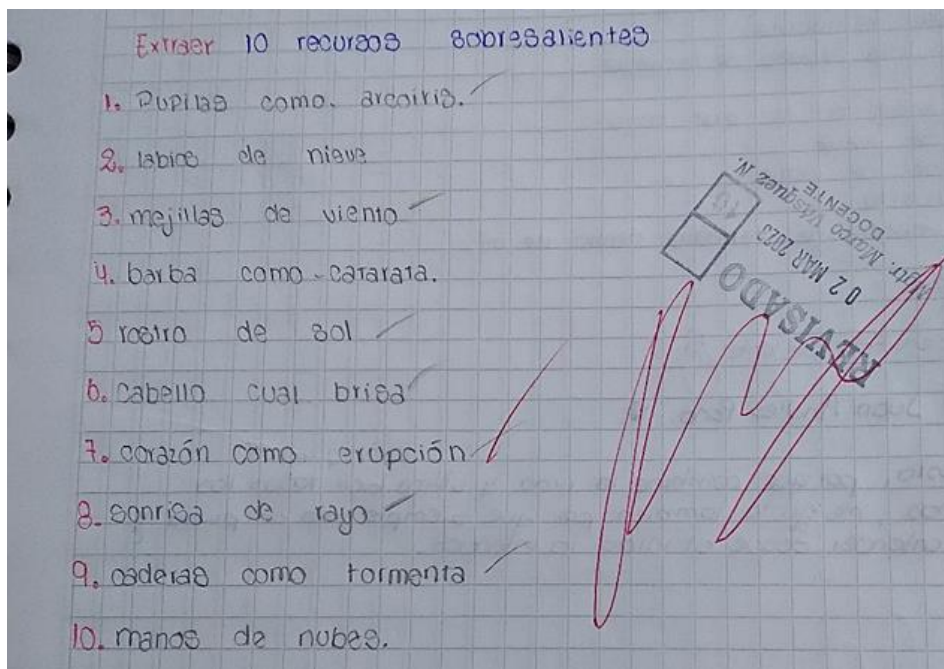 Extraer 10 recursos sobresalientes
1. Pupilas como. arcoiris.
2. labios de nieve
3. mejillas de viento
4. barba como - catarata.
5 rostro de sol
6. cabello cual brisa
7. corazón como erupción
8. sonrisa de rayo
9. caderas como tormenta
10. manos de nubes.
Mgtr. Marco Vásquez N.
DOCENTE
02 MAR 2023
REVISADO